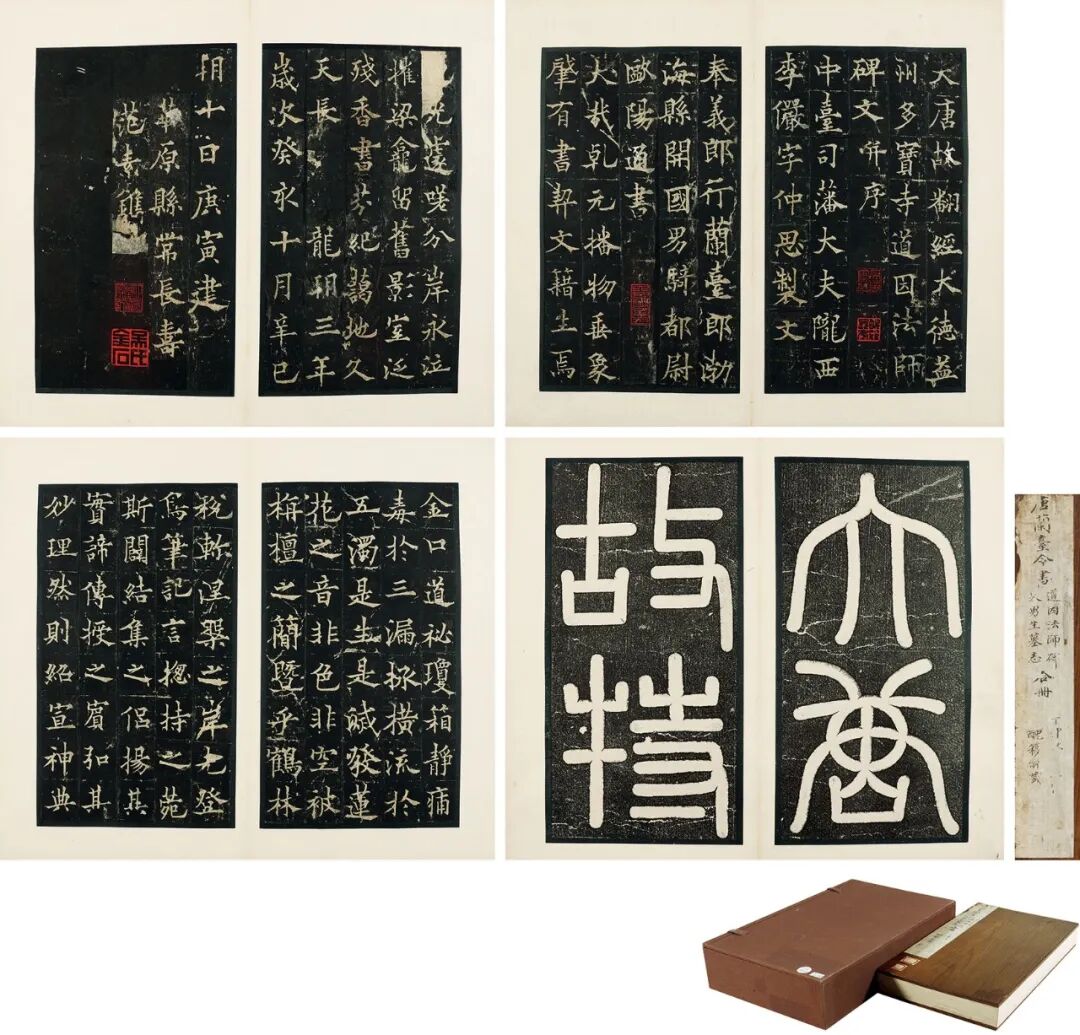 光遠嗟分岸永泣
摧梁龕留舊影室泛
殘香書芬紀萬地久
天長 龍朔三年
歲次癸亥十月辛巳
朔十日庚寅建
華原縣常長壽
范素鐫
大唐故翻經大德益
州多寶寺道因法師
碑文并序
中臺司藩大夫隴西
李儼字仲思製文
奉義郎行蘭臺郎渤
海縣開國男騎都尉
歐陽通書
大哉乾元播物垂象
肇有書契文籍生焉
金口道祕瓊箱靜痛
毒於三漏拯橫流於
五濁是生是滅發蓮
花之音非色非空被
栴檀之簡暨乎鶴林
稅軫涅槃之岸先登
烏筆記言揔持之菀
斯闢結集之侶揚其
實諦傳授之賓弘其
妙理然則紹宣神典
大唐
故特
唐蘭臺令書
道因法師碑
男生墓志
合冊